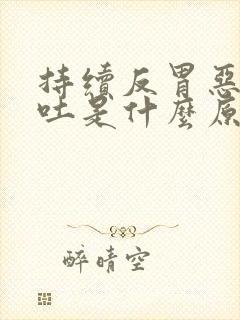 持續反胃惡
吐是什麼原
醉晴空